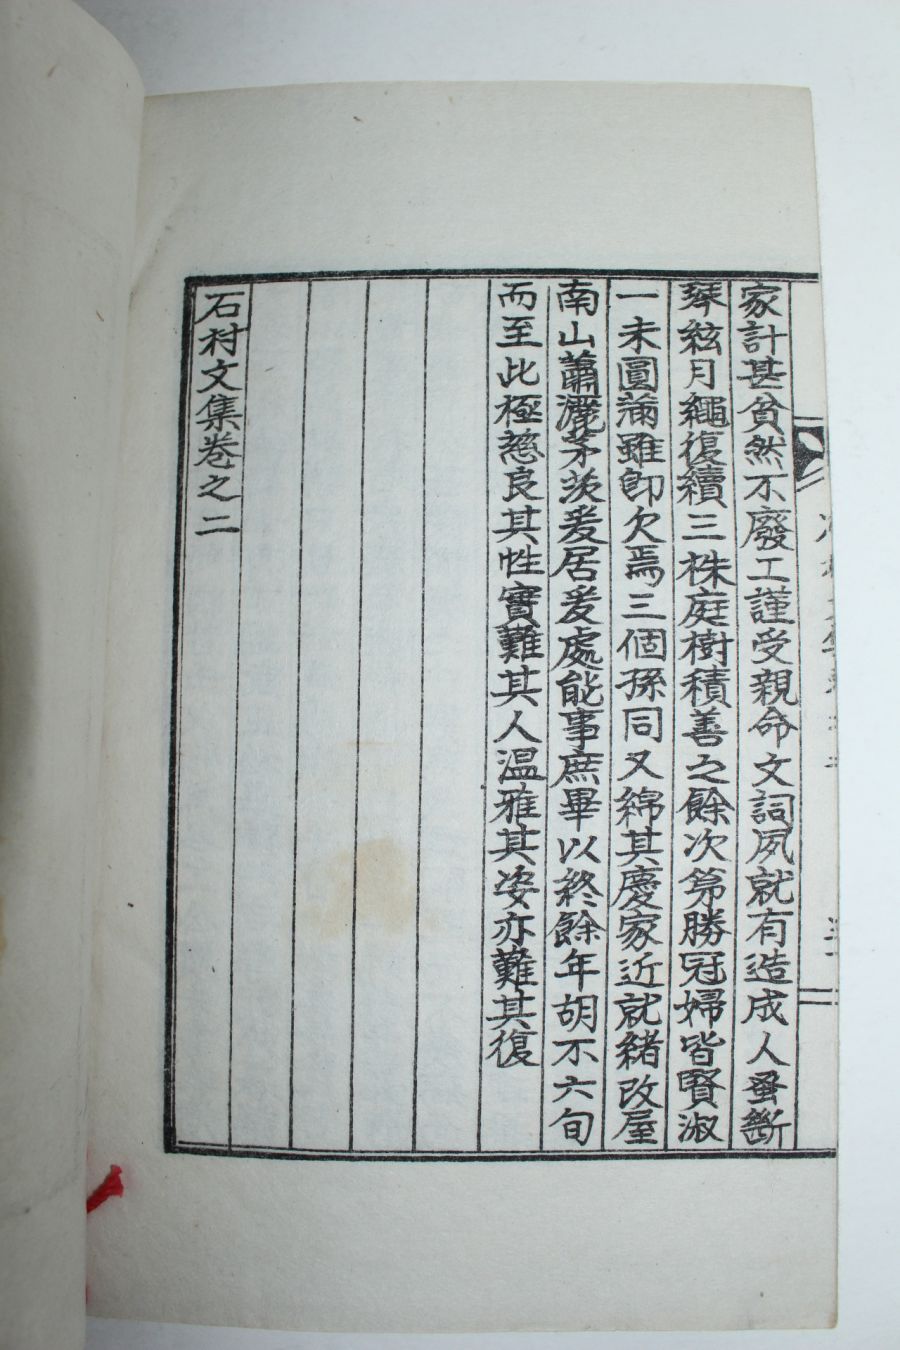 家計甚貧然不廢工謹受親命文詞夙就有造成人蚤斷
琴絃月繩復續三株庭樹積善之餘次第勝冠婦皆賢淑
一未圓滿雖卽欠焉三個孫同又綿其慶家近就緒改屋
南山蕭灑茅茨爰居爰處能事庶畢以終餘年胡不六旬
而至此極慈良其性實難其人溫雅其姿亦難其復
石村文集卷之二